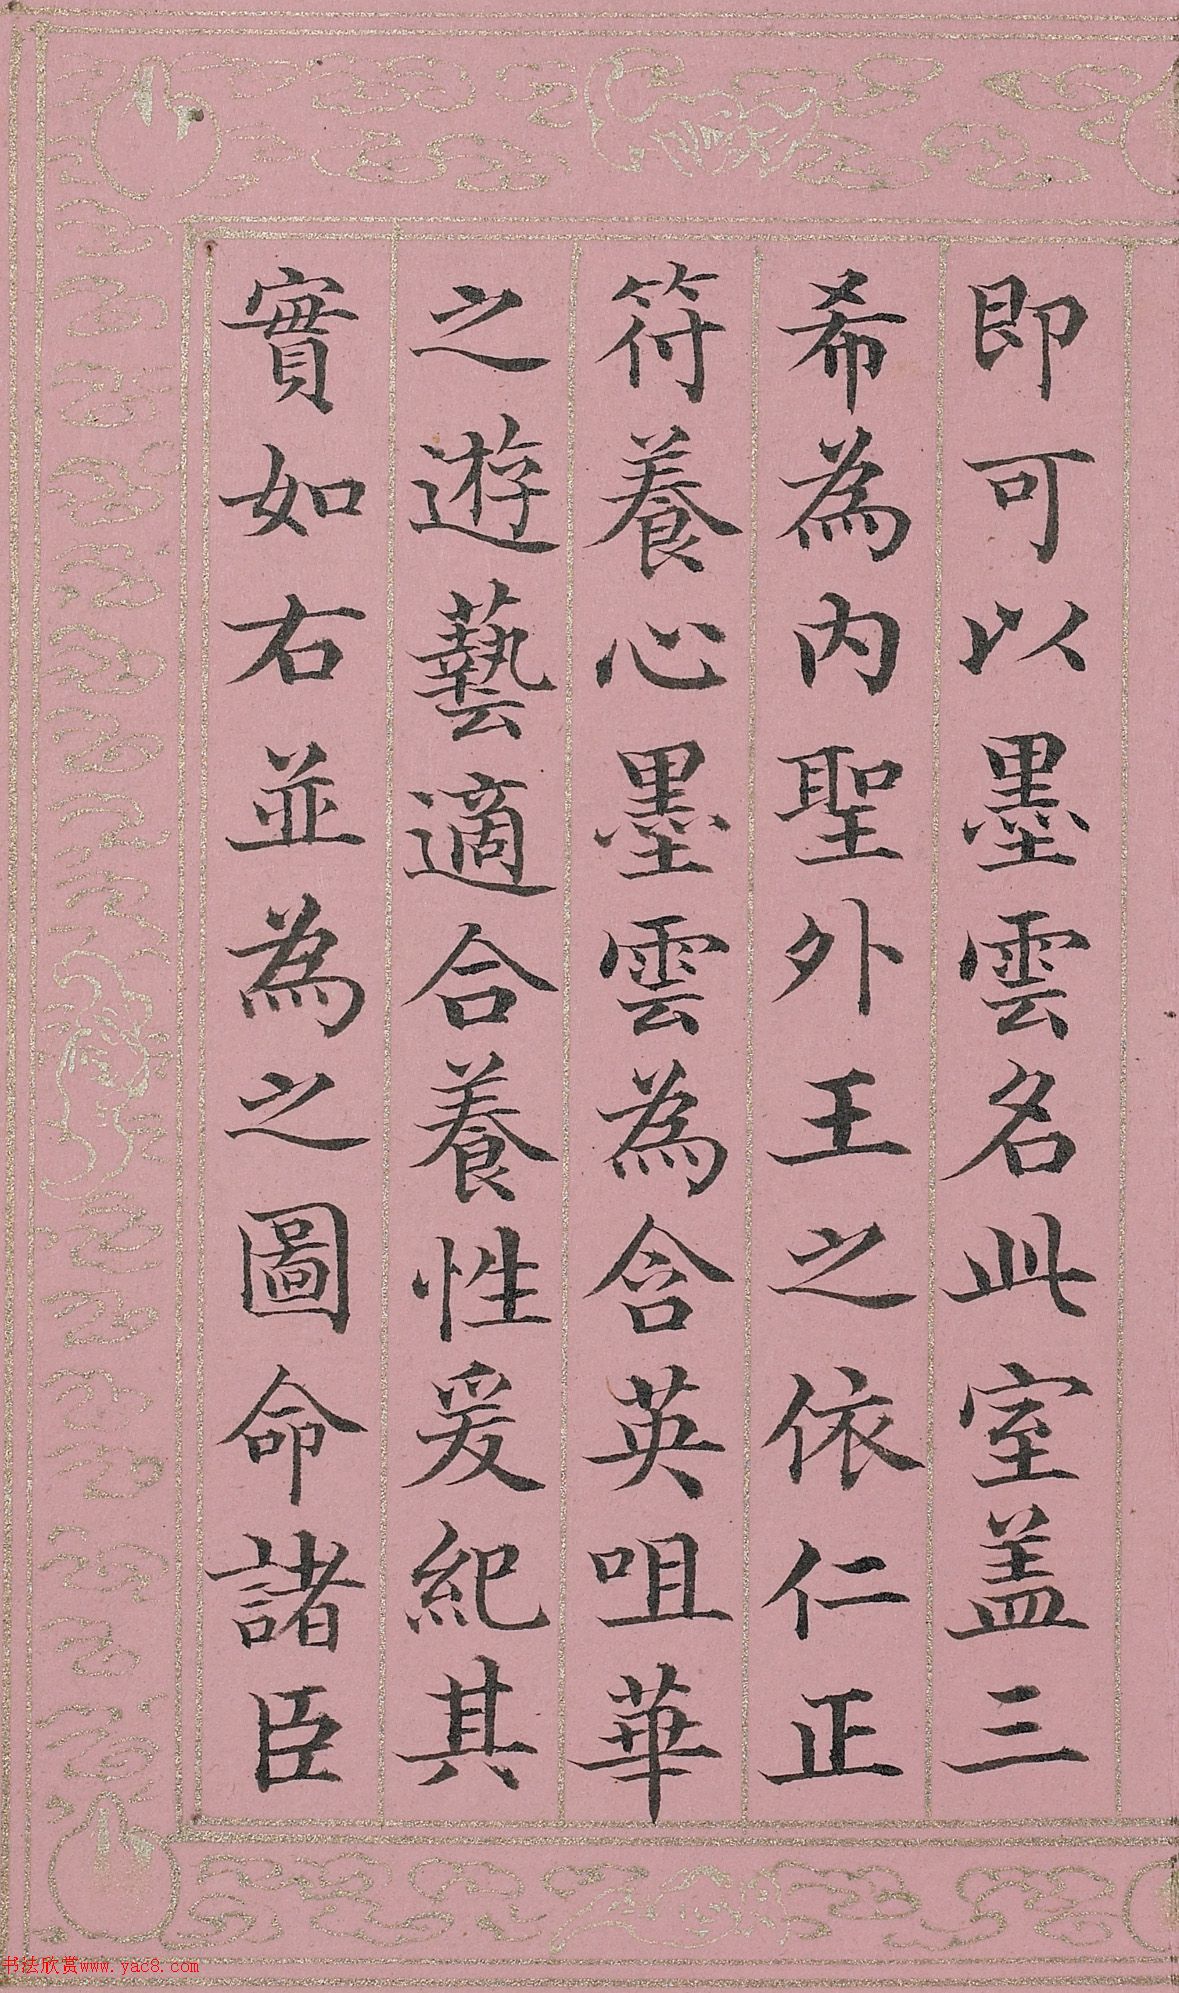 即可以墨雲名此室盖三
希為内聖外王之依仁正
符養心墨雲為含英咀華
之遊藝適合養性爰紀其
實如右並為之圖命諸臣
书法欣赏www.yac8.com